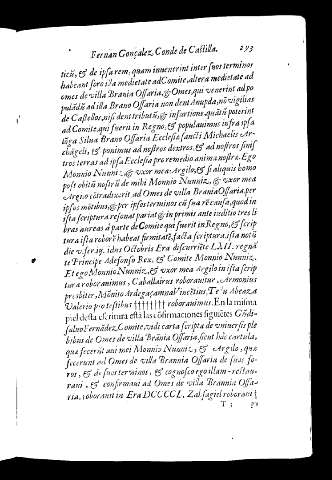 Fernan Gonçalez, Conde de Castilla. 293
ticũ, & de ipsa rem, quam invenerint inter suos terminos
habeant foris ista medietate ad Comite, altera medietate ad
omes de villa Brania Ossaria, & Omes, qui venerint ad po
pulãdũ ad illa Brano Ossaria non dent Anupda, nõ vigilias
de Castellos, nisi dent tributũ, & infurtione quãtũ poterint
ad Comite, qui fuerit in Regno, & populavimus infra ipsa
Silva Brano Ossaria Ecclesia sancti Michaelis Ar-
chãgeli, & ponimus ad nostros dextros, & ad nostros sinis
tros terras ad ipsa Ecclesia pro remedio anima nostra. Ego
Monnio Nunniz, & vxor mea Argilo, & si aliquis homo
post obitũ nostrũ de mihi Monnio Nunniz, & vxor mea
Argilo cõtradixerit ad Omes de villa Brania Ossaria per
ipsos mõtibus, & per ipsos terminos cũ sua causa, quod in
ista scriptura resonat pariat & in primis ante initio tres li
bras aureas à parte de Comite qui fuerit in Regno, & scrip
tura ista robore habeat firmitatẽ, facta scriptura, ista notũ
die idus Octobris Era discurrẽte LXII. regnã
te Principe Adefonso Rex, & Comite Monnio Nunniz.
Et ego Monnio Nunniz, & vxor mea Argilo in ista scrip
tura roboravimus, Caballairus roborantur, Armonius
presbiter, Monio
Valerio pro testibus †††††††† roboravimus. En la misma
piel desta escritura està las cõfirmaciones siguiẽtes Gũdi-
salvo Fernãdez Comite, vidi carta scripta de universis ple
bibus de Omes de villa Brãnia Ossaria, sicut hic cartula,
qua fecerũt avi mei Monnio Nunniz, & Argilo, qua
fecerunt ad Omes de villa Brannia Ossaria de suos fo-
ros, & de suos terminos, & cognosco ego illam restau-
rani, & confirmavi ad Omes de villa Brannia Ossa-
ria, roboravit in Era DCCCCL. roboravi †
T 3